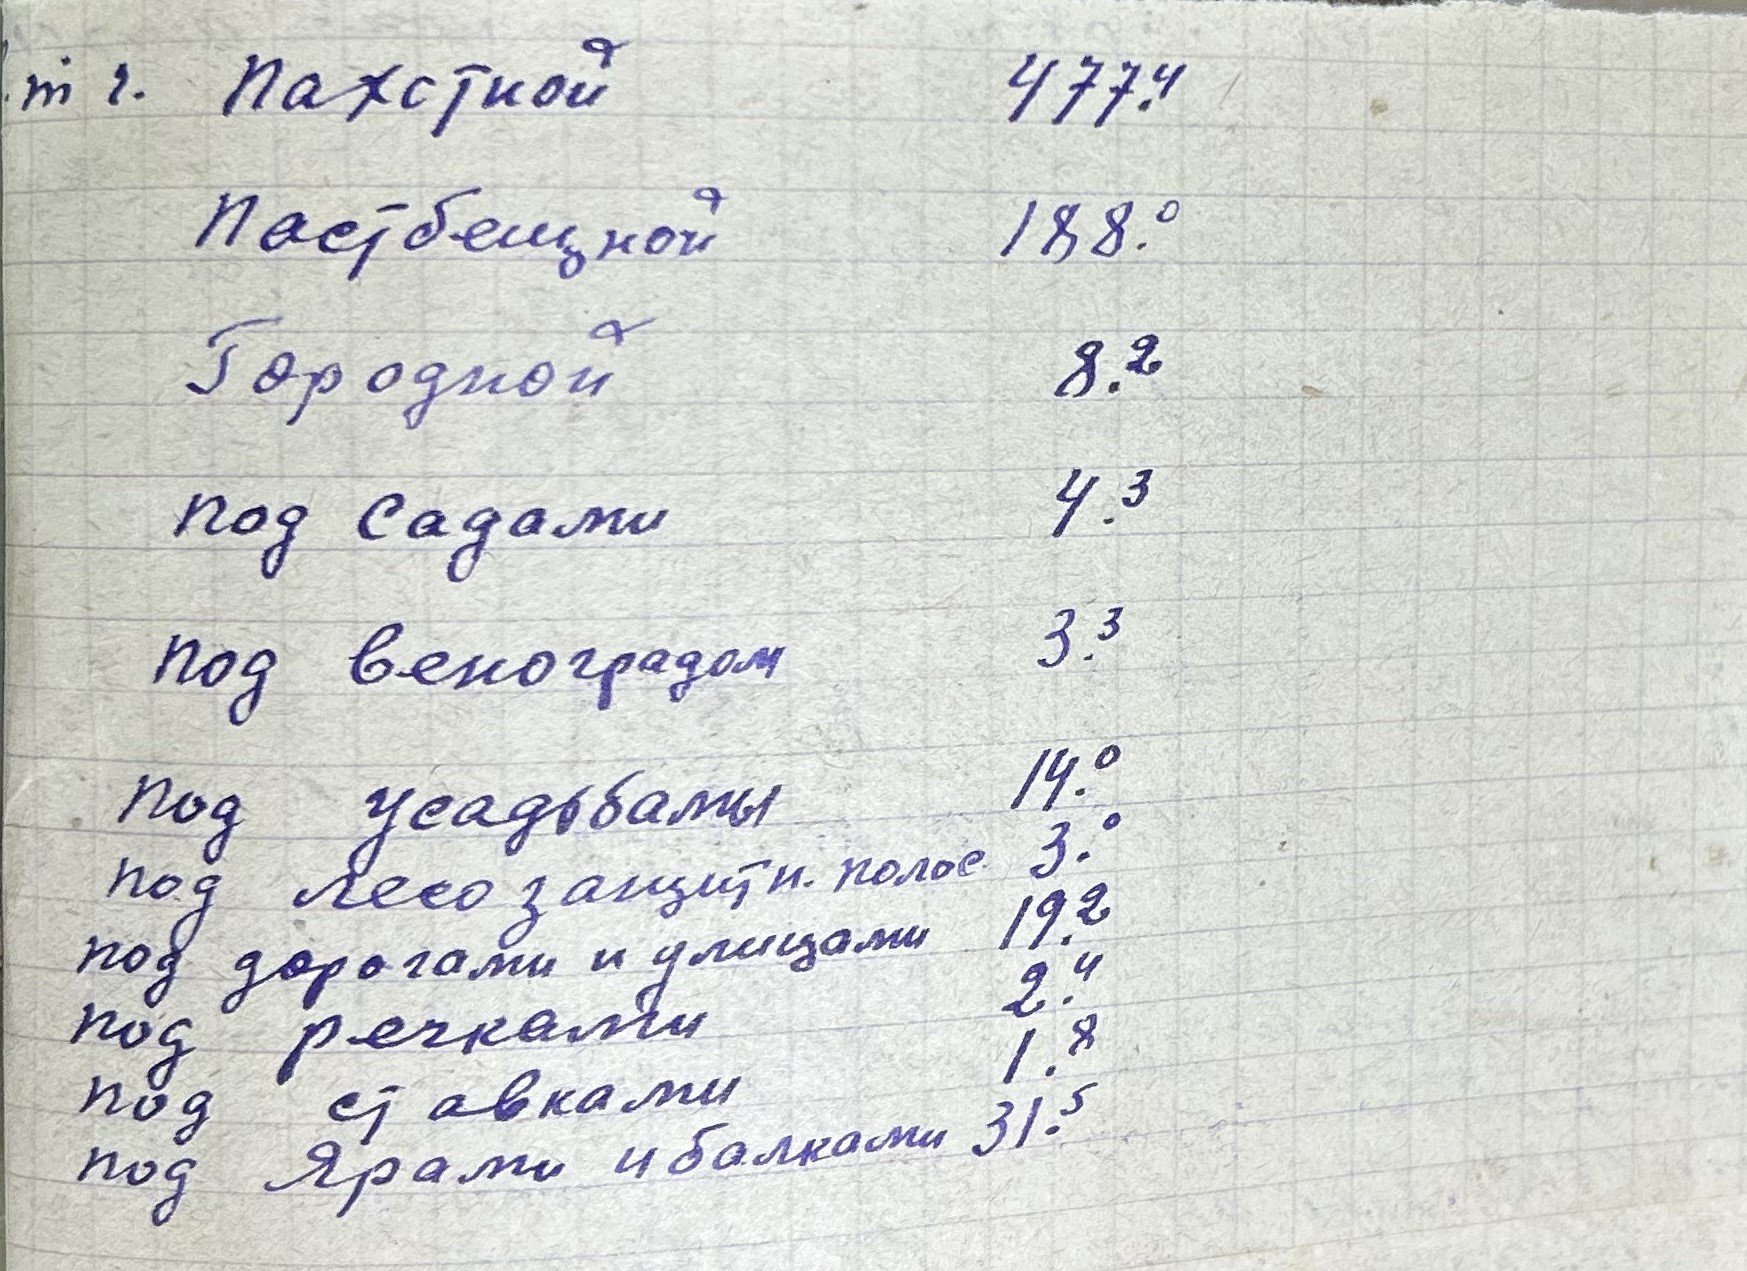 т г. Пахстной 477.4
Пастбещной 188.0
Городной 8.2
под садами 4.3
под веноградом 3.3
под усадьбамы 14.0
под лесозащитн. полос 3.0
под дорогами и улицами 19.2
под речками 2.4
под ставками 1.8
под Ярами и балками 31.5